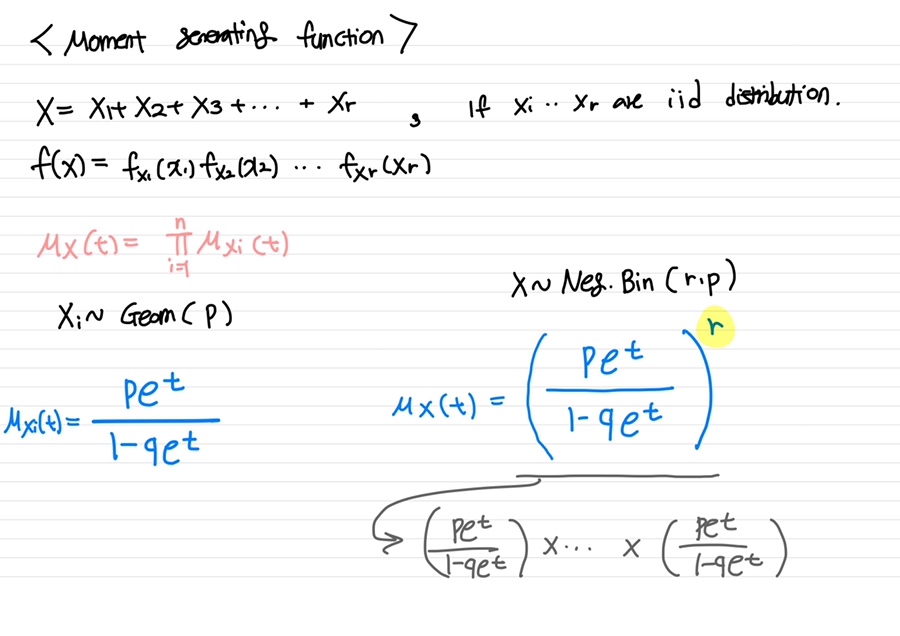 < Moment generating function >
X = X1 + X2 + X3 + ... + Xr , If Xi .. Xr are iid distribution.
f(x) = fx₁(x₁) fx₂(x2) ... fxr(xr)
Mx(t) = ∏ᵢ₌₁ⁿ Mxi(t)
X ~ Neg. Bin (r.p)
Xi ~ Geom(p)
Mxi(t) = pe^t / 1-qe^t
Mx(t) = (pe^t / 1-qe^t)^r
(pe^t / 1-qe^t) x ... x (pe^t / 1-qe^t)